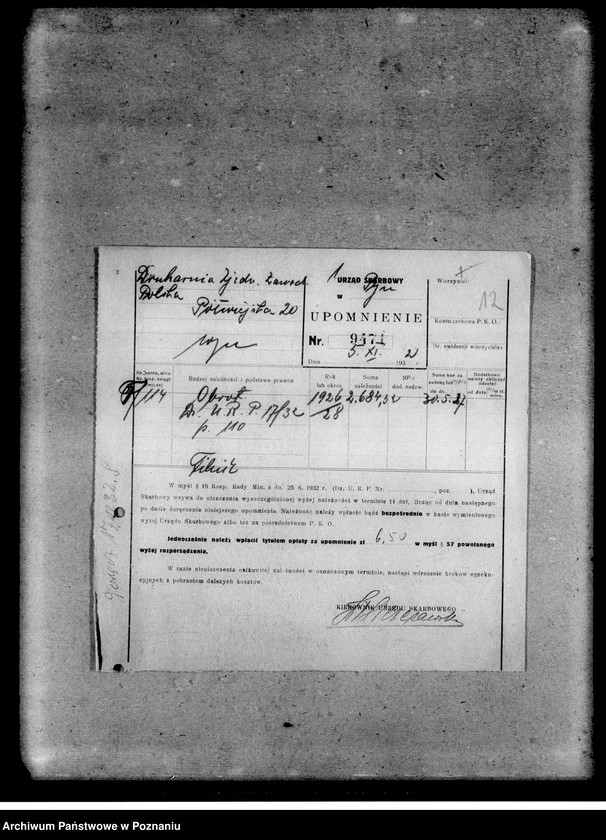 Drukarnia Zjedn. Zawod.
Polska
Półwiejska 20
1 URZĄD SKARBOWY
w
UPOMNIENIE
Nr. 9474
5. XI. 1932
Data
Wierzyciel:
12
Konto czekowe P. K. O.:
Nr. ewidencji wierzyciela:
Rodzaj należności i podstawa prawna
Rok
lub okres
Suma
należności
10%
dod. nadzw.
/114
Obrót
1926
28
2.684,52
30.5.
Dz. U. R. P. 17/32
p. 110
W myśl § 16 Rozp. Rady Min. z dn. 25. 6. 1932 r. (Dz. U. R. P. Nr. , poz. ), Urząd
Skarbowy wzywa do uiszczenia wyszczególnionej wyżej należności w terminie 14 dni, licząc od dnia następnego
po dacie doręczenia niniejszego upomnienia. Należność należy wpłacić bądź bezpośrednio w kasie wymienionego
wyżej Urzędu Skarbowego albo też za pośrednictwem P. K. O.
Jednocześnie należy wpłacić tytułem opłaty za upomnienie zł 6,50 w myśl § 57 powołanego
wyżej rozporządzenia.
W razie nieuiszczenia całkowitej należności w oznaczonym terminie, nastąpi wdrożenie kroków egzeku-
cyjnych z pobraniem dalszych kosztów.
KIEROWNIK URZĘDU SKARBOWEGO
Archiwum Państwowe w Poznaniu